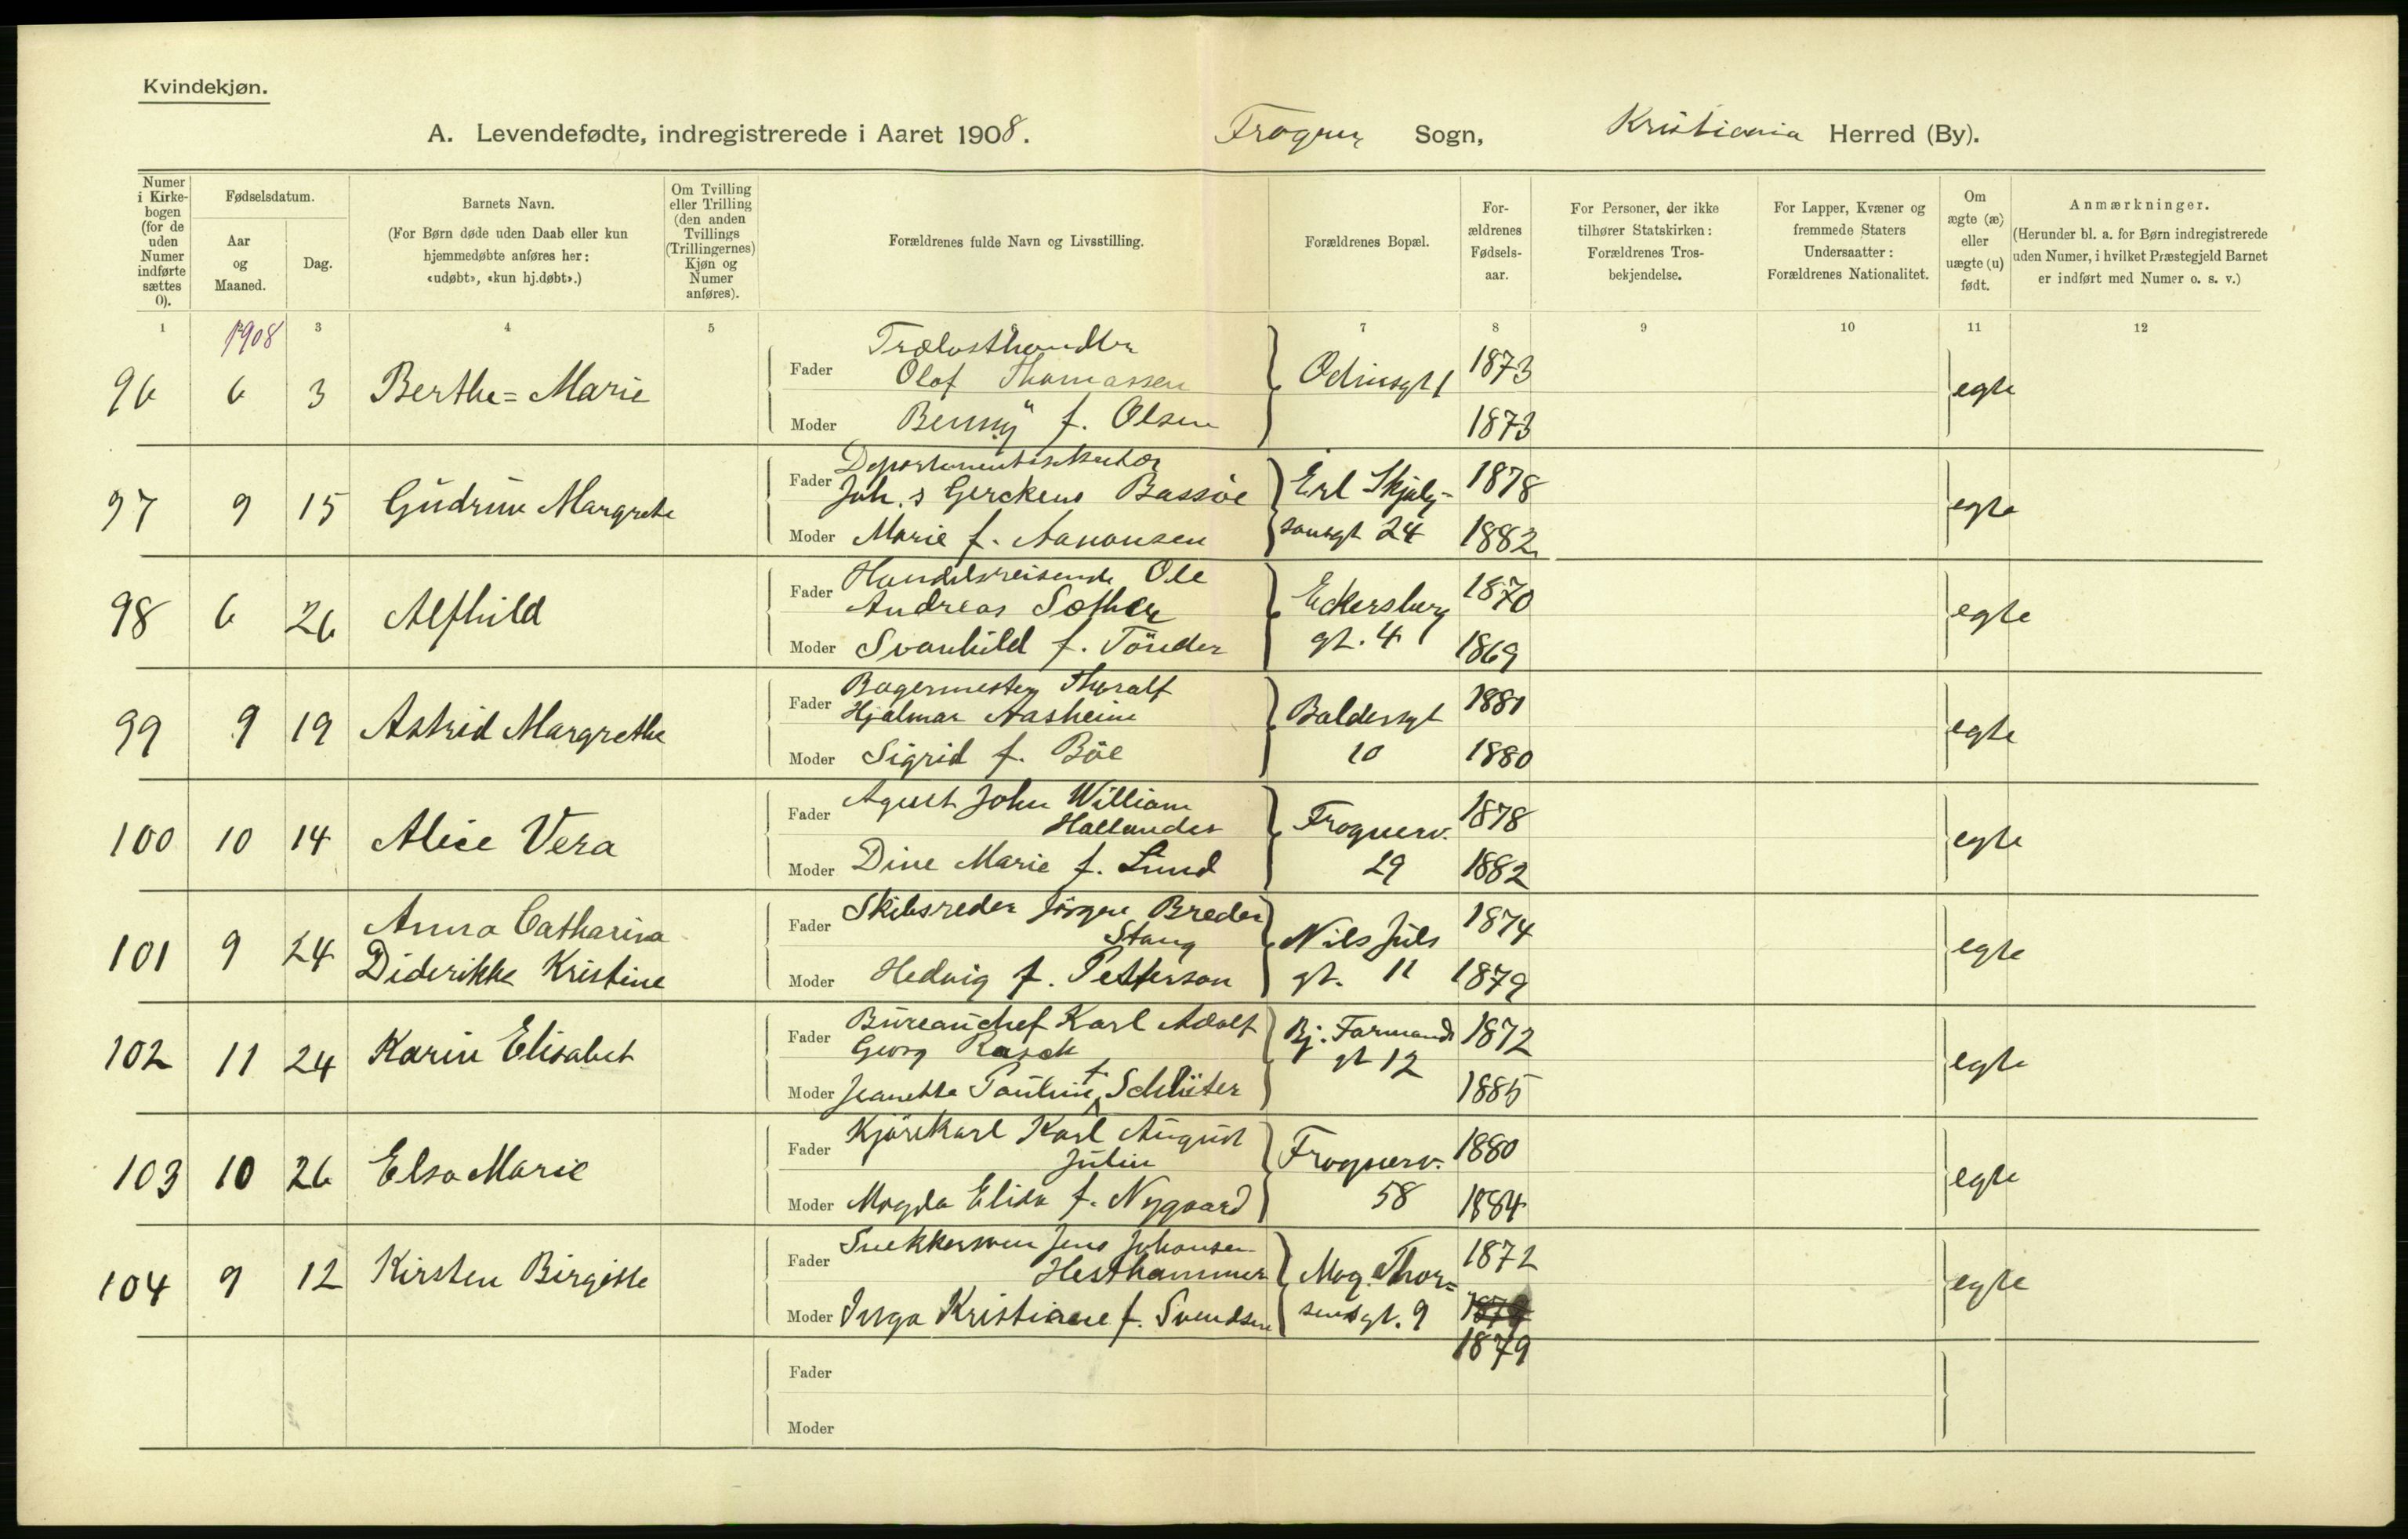 Kvindekjøn.
A. Levendefødte, indregistrerede i Aaret 1908. Frogner Sogn, Kristiania Herred (By).
Numer i Kirkebogen (for de uden Numer indførte sættes 0).
Fødselsdatum.
Aar og Maaned.
Dag.
Barnets Navn.
(For Børn døde uden Daab eller kun hjemmedøbte anføres her: «udøbt», «kun hj.døbt».)
Om Tvilling eller Trilling (den anden Tvillings (Trillingernes) Kjøn og Numer anføres).
Forældrenes fulde Navn og Livsstilling.
Forældrenes Bopæl.
For-ældrenes Fødsels-aar.
For Personer, der ikke tilhører Statskirken: Forældrenes Tros-bekjendelse.
For Lapper, Kvæner og fremmede Staters Undersaatter: Forældrenes Nationalitet.
Om ægte (æ) eller uægte (u) født.
Anmærkninger.
(Herunder bl. a. for Børn indregistrerede uden Numer, i hvilket Præstegjeld Barnet er indført med Numer o. s. v.)
1 1908 3 4 5 7 8 9 10 11 12
96 6 3 Berthe=Marie
Fader Trælasthandler
Olaf Thomassen Odinsgt 1 1873 egte
Moder Benny f. Olsen 1873
97 9 15 Gudrun Margrete
Fader Departementssekretær
Joh.s Gerckens Bassøe Erl Skjalg- 1878 egte
Moder Marie f. Aanonsen sønsgt 24 1882
98 6 26 Alfhild
Fader Handelsreisende Ole
Andreas Sæther Eckersberg 1870 egte
Moder Svanhild f. Tönder gt. 4 1869
99 9 19 Astrid Margrethe
Fader Bagermester Thoralf
Hjalmar Aasheim Baldersgt 1881 egte
Moder Sigrid f. Böe 10 1880
100 10 14 Alice Vera
Fader Agent John William
Hallander Frognerv. 1878 egte
Moder Dine Marie f. Lund 29 1882
101 9 24 Anna Catharina
Diderikke Kristine
Fader Skibsreder Jörgen Breder
Stang Nils Juls 1874 egte
Moder Hedvig f. Petterson gt. 11 1879
102 11 24 Karin Elisabet
Fader Büreauchef Karl Adolf
Georg Rasch Bj. Farmands 1872 egte
gt 12
Moder Jeanette Pauline f. Schlüter 1885
103 10 26 Elsa Marie
Fader Kjörekarl Karl August
Julin Frognerv. 1880 egte
Moder Magda Elisa f. Nygaard 58 1884
104 9 12 Kirsten Birgitte
Fader Snekkersven Jens Johansen
Hesthammer Mag. Thor= 1872 egte
Moder Inga Kristiane f. Svendsen sensgt. 9
1879
Fader
Moder